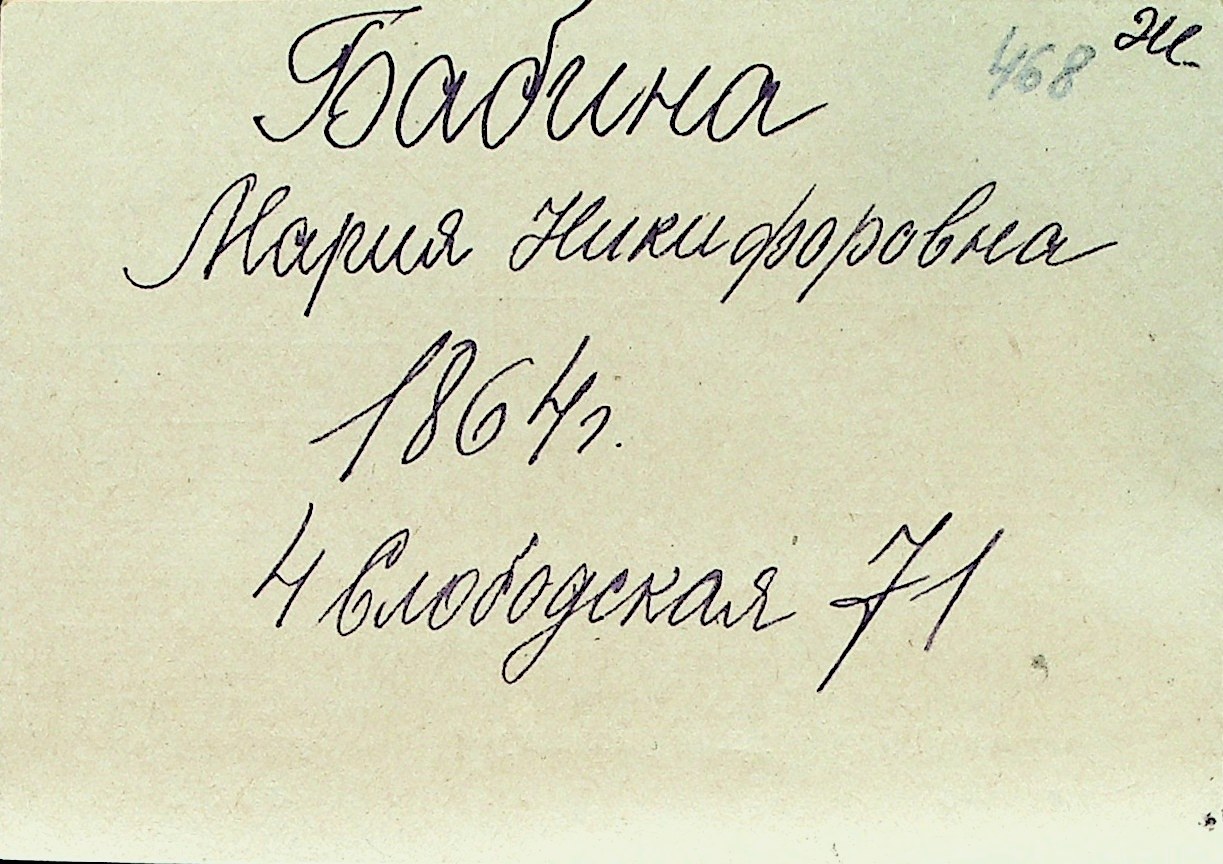 468 Ж
Бабина
Мария Никифоровна
1864г.
4 Слободская 71